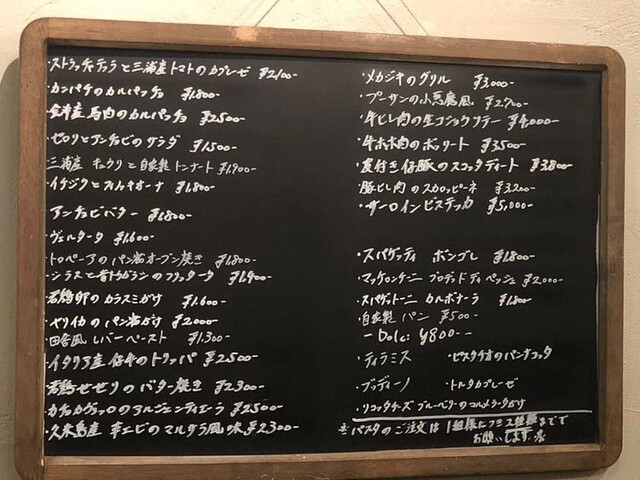 ・ストラッチャテッラと三浦産トマトのカプレーゼ ¥2,100-
・カンパチのカルパッチョ ¥1,800-
・会津産馬肉のカルパッチョ ¥2500-
・セロリとアンチョビのサラダ ¥1,500-
・三浦産 キュウリと自家製トンナート ¥1,900-
・イチジクと ¥1,800-
・アンチョビバター ¥1,800-
・ヴェルターダ ¥1,600-
・トロペーアのパン粉オーブン焼き ¥1,800-
・シラスと のフリッタータ ¥1,900-
・ のカラスミがけ ¥1,600-
・ヤリイカのパン粉 ¥2,000-
・田舎風レバーペースト ¥1,300-
・イタリア産仔牛のトリッパ ¥2500-
・若鶏せせりのバター焼き ¥2,300-
・カチョカヴァッロのアルジェンティエーラ ¥2500-
・久米島産 車エビのマルサラ風味 ¥2300-
・メカジキのグリル ¥3,000-
・プーサンの小悪魔風 ¥2,700-
・牛ヒレ肉の ¥4,000-
・牛ホホ肉のボッリート ¥3500-
・皮付き仔豚のスコッタディート ¥3,800-
・豚ヒレ肉のスカロッピーネ ¥3,200-
・サーロインビステッカ ¥5,000-
・スパゲッティ ボンゴレ ¥1,800-
・マッケロンチーニ ブロデッド ディ ペッシェ ¥2,000-
・スパゲットーニ カルボナーラ ¥1,800-
・自家製パン ¥500-
- Dolci ¥800- -
・ティラミス ・ピスタチオのパンナコッタ
・ブディーノ ・トルタカプレーゼ
・リコッタチーズ ブルーベリーのマルメラータがけ
※パスタのご注文は1組様につき2種類までで
お願いします※